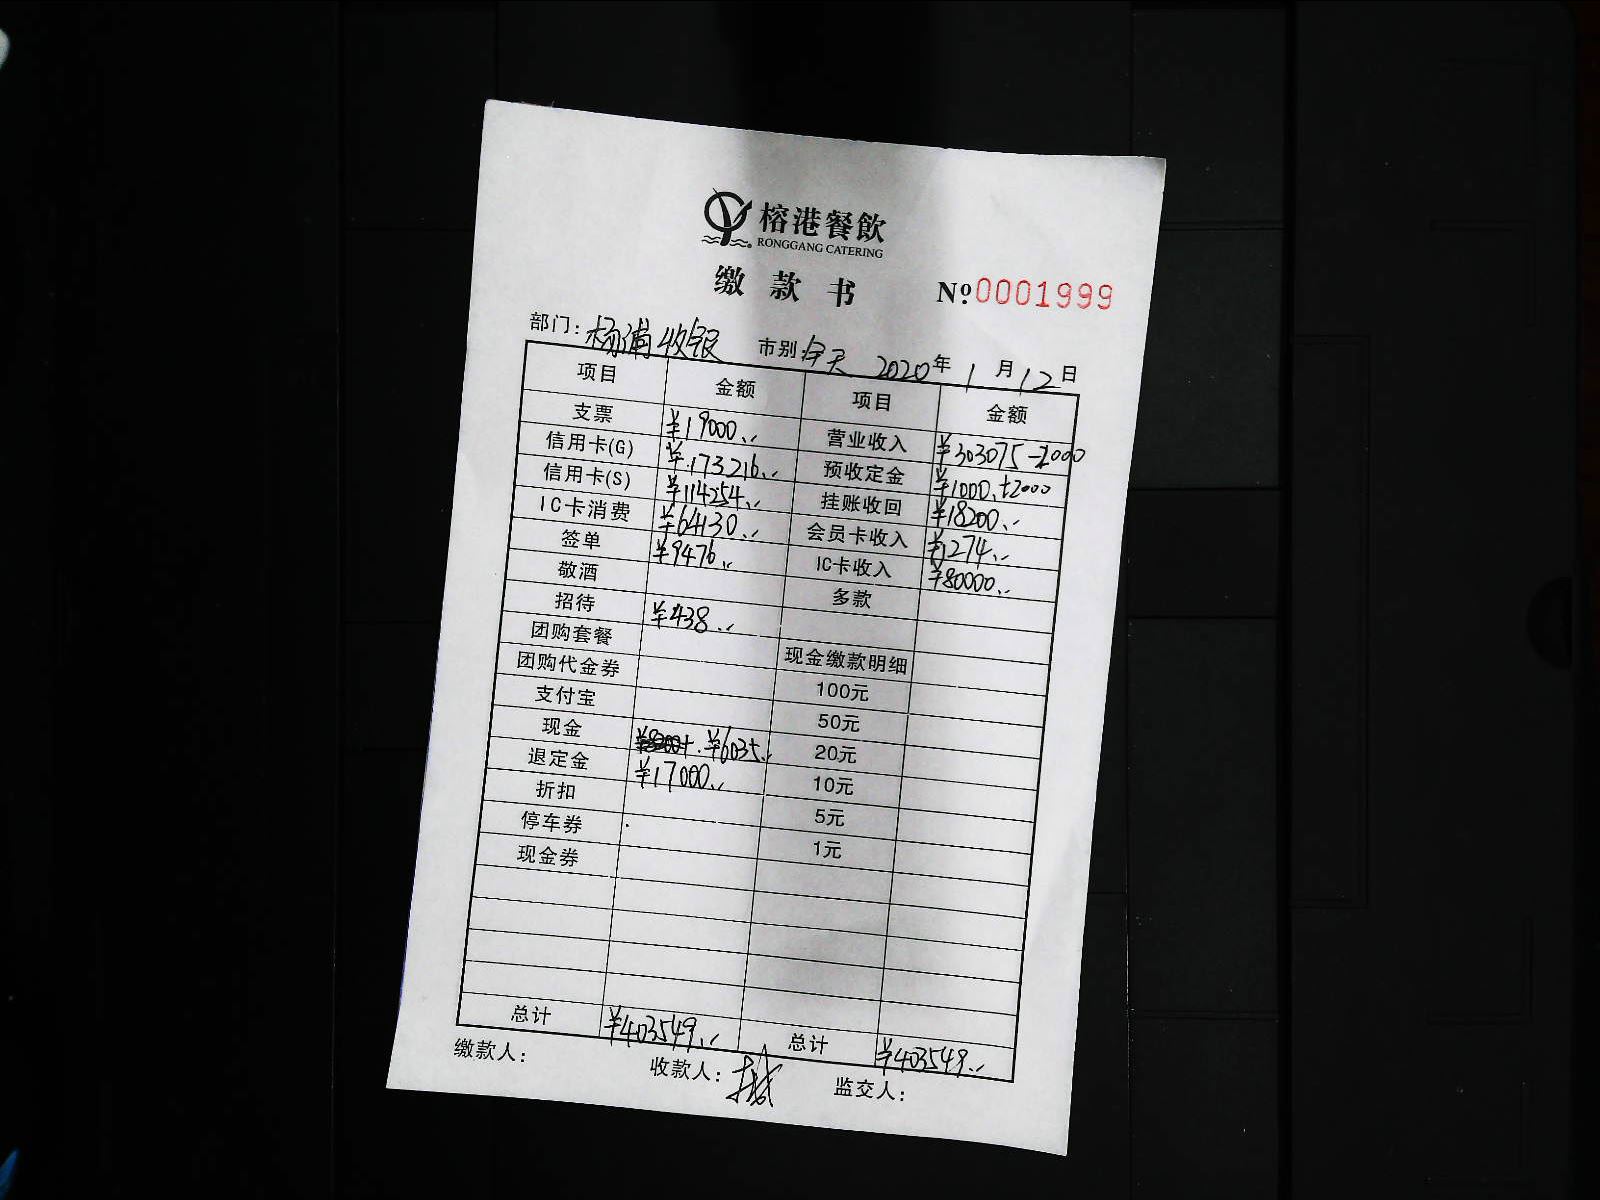 榕港餐飲
RONGGANG CATERING
缴款书 № 0001999
部门: 杨浦收银 市别: 全天 2020年1月12日
项目 金额 项目 金额
支票 ¥19000. 营业收入 ¥303075-2000
信用卡(G) ¥173216. 预收定金 ¥1000.+2000
信用卡(S) ¥114254. 挂账收回 ¥18200.
IC卡消费 ¥64130. 会员卡收入 ¥1274.
签单 ¥9476. IC卡收入 ¥80000.
敬酒 多款
招待 ¥438.
团购套餐 现金缴款明细
团购代金券 100元
支付宝 50元
现金 ¥6035. 20元
退定金 ¥17000. 10元
折扣 5元
停车券 1元
现金券
总计 ¥403549. 总计 ¥403549.
缴款人: 收款人: 监交人: